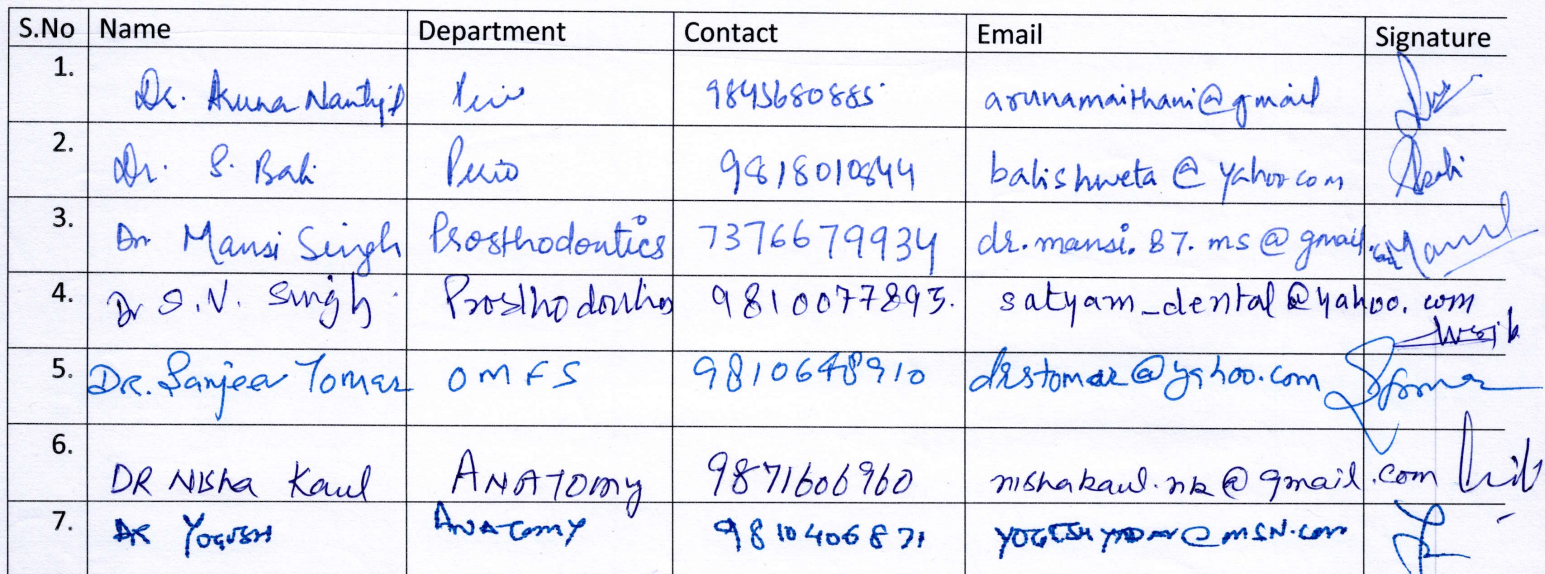 S.No Name Department Contact Email Signature
1. Dr. Aruna 9845680885 arunamaithani@gmail
2. Dr. S. Bali Perio 9818010844 balishweta@yahoo.com Bali
3. Dr Mansi Singh Prosthodontics 7376679934 dr.mansi.87.ms@gmail.com Mansi
4. Dr S.V. Singh Prosthodontics 9810077893. satyam_dental@yahoo.com
5. DR. Sanjeev Tomar OMFS 9810648910 drstomar@yahoo.com STomar
6. DR NISha Kaul ANATOMY 9871606960 nishakaul.nk@gmail.com
7. DR YOGESH ANATOMY 9810406871 YOGESHYADAV@MSN.COM